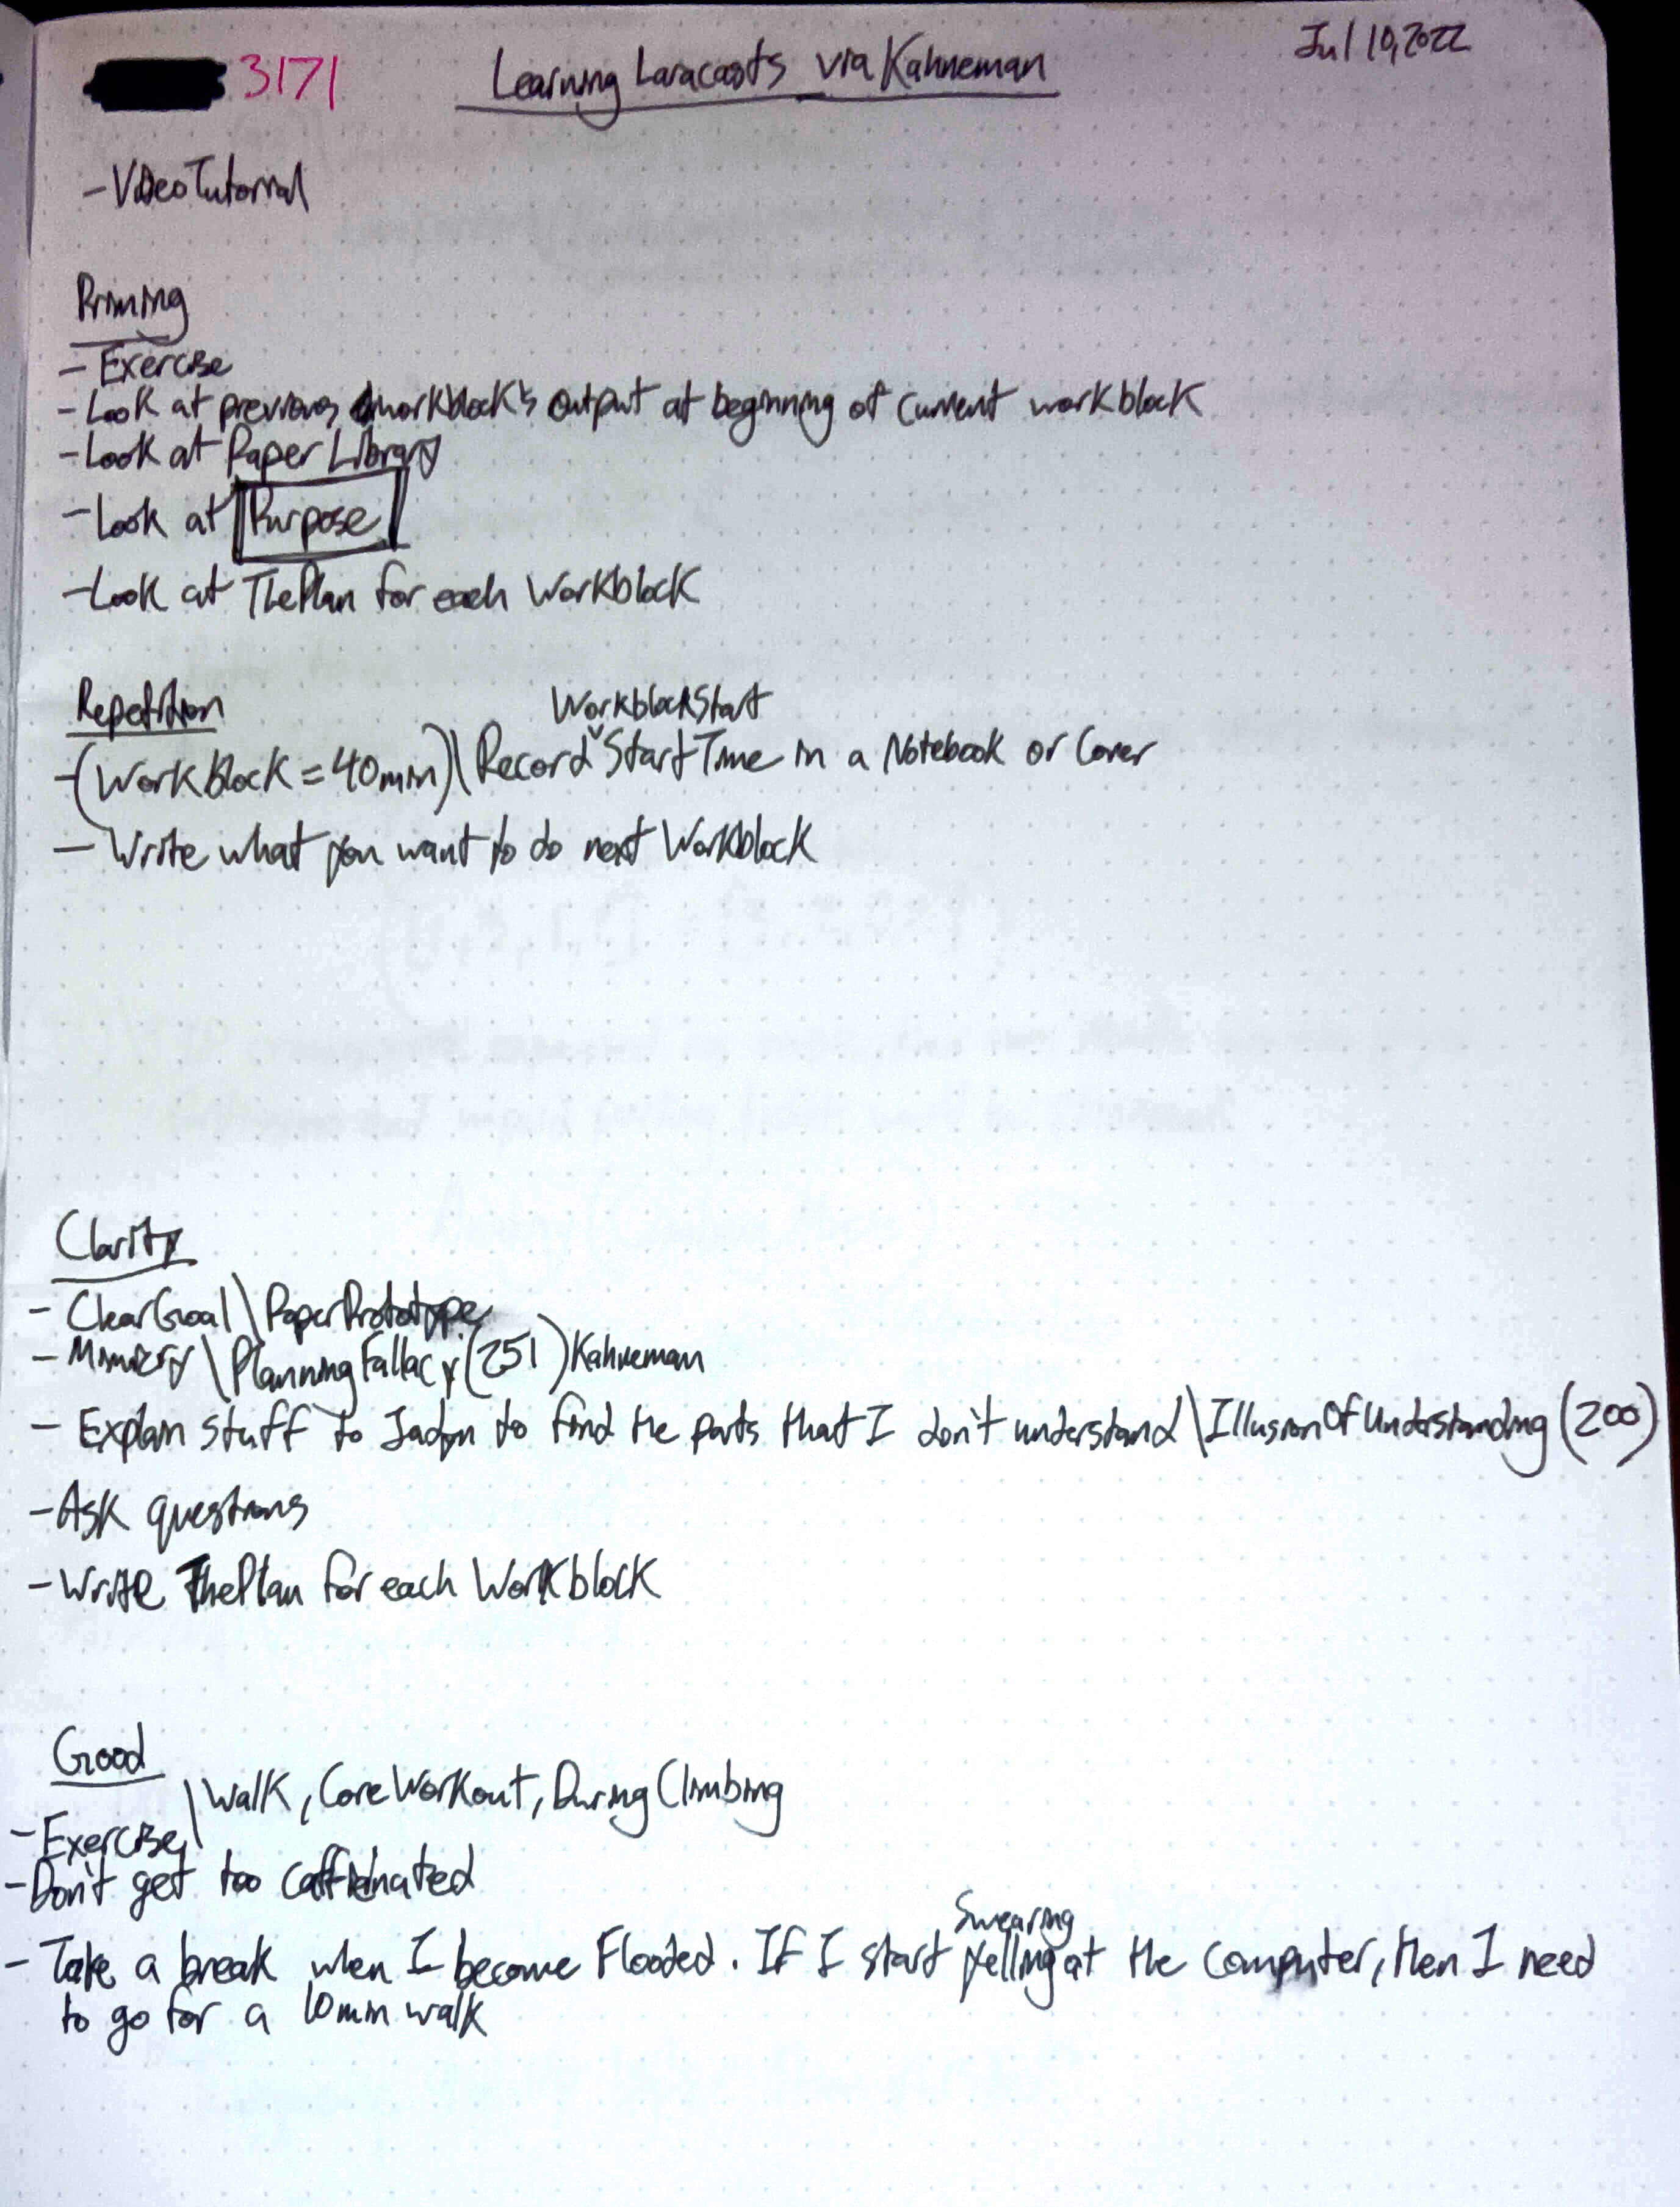 3171
Learning Laracasts via Kahneman
Jul 10, 2022
- VideoTutorial
Priming
- Exercise
- Look at previous workblock's output at beginning of current workblock
- Look at Paper Library
- Look at Purpose
- Look at ThePlan for each Workblock
Repetition
WorkblockStart
- (WorkBlock = 40min) \ Record ˅ StartTime in a Notebook or Cover
- Write what you want to do next Workblock
Clarity
- ClearGoal \ PaperPrototype
- Mimicry \ PlanningFallacy (251) Kahneman
- Explain stuff to Jadyn to find the parts that I don't understand \ IllusionOfUnderstanding (200)
- Ask questions
- Write ThePlan for each Workblock
Good
- Exercise \ Walk, CoreWorkout, During Climbing
- Don't get too caffeinated
Swearing
- Take a break when I become Flooded. If I start yelling at the computer, then I need
to go for a 10min walk